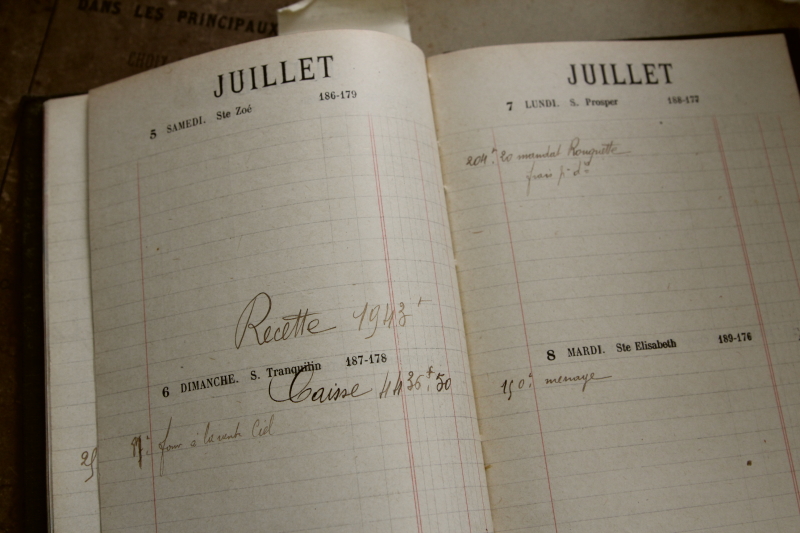 DANS LES PRINCIPAUX
CHOIX
JUILLET
5 SAMEDI. Ste Zoé 186-179
Recette 1943 f
6 DIMANCHE. S. Tranquilin 187-178
Caisse 4436 f. 50
25
JUILLET
7 LUNDI. S. Prosper 188-177
204 f. 20 mandat Rouquette
frais
8 MARDI. Ste Elisabeth 189-176
150 f. menage